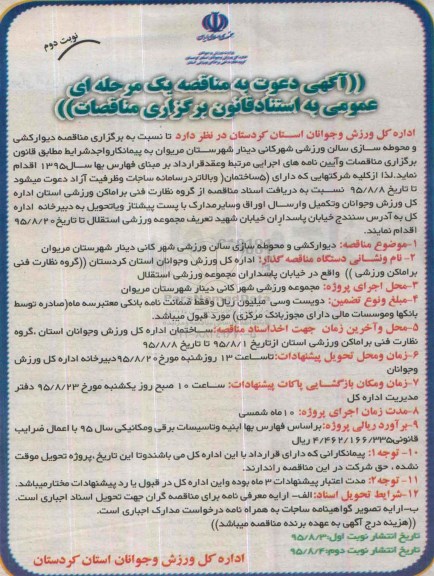 نوبت دوم
((آگهی دعوت به مناقصه یک مرحله ای
عمومی به استناد قانون برگزاری مناقصات))
اداره کل ورزش وجوانان استان کردستان در نظر دارد تا نسبت به برگزاری مناقصه دیوارکشی
و محوطه سازی سالن ورزشی شهرکانی دینار شهرستان مریوان به پیمانکارواجدشرایط مطابق قانون
برگزاری مناقصات وآیین نامه های اجرایی مرتبط وعقدقرارداد بر مبنای فهارس بها سال۱۳۹۵ اقدام
نماید.لذا ازکلیه شرکتهایی که دارای (۵ساختمان( وبالاتردرسامانه ساجات وظرفیت آزاد دعوت میشود
تا تاریخ ۹۵/۸/۸ نسبت به دریافت اسناد مناقصه از گروه نظارت فنی براماکن ورزشی استان اداره
کل ورزش وجوانان وتکمیل وارسال اوراق وسایرمدارک با پست پیشتاز ویاتحویل به دبیرخانه اداره
کل به آدرس سنندج خیابان پاسداران خیابان شهید تعریف مجموعه ورزشی استقلال تا تاریخ۹۵/۸/۲۰
اقدام نمایند.
۱-موضوع مناقصه: دیوارکشی و محوطه سازی سالن ورزشی شهر کانی دینار شهرستان مریوان
۲- نام ونشانی دستگاه مناقصه گذار: اداره کل ورزش وجوانان استان کردستان ((گروه نظارت فنی
براماکن ورزشی )) واقع در خیابان پاسداران مجموعه ورزشی استقلال
۳-محل اجرای پروژه: مجموعه ورزشی شهر کانی دینار شهرستان مریوان
۴-مبلغ ونوع تضمین: دویست وسی میلیون ریال وفقط ضمانت نامه بانکی معتبرسه ماه(صادره توسط
بانکها وموسسات مالی دارای مجوزبانک مرکزی) مورد قبول میباشد.
۵-محل وآخرین زمان جهت اخذاسناد مناقصه:ساختمان اداره کل ورزش وجوانان استان ،گروه
نظارت فنی براماکن ورزشی استان ازتاریخ ۹۵/۸/۱ تا تاریخ ۹۵/۸/۸
۶-زمان ومحل تحویل پیشنهادات:تاساعت ۱۳ روزشنبه مورخ۹۵/۸/۲۰دبیرخانه اداره کل ورزش
وجوانان
۷-زمان ومکان بازگشایی پاکات پیشنهادات: ساعت ۱۰ صبح روز یکشنبه مورخ ۹۵/۸/۲۳ دفتر
مدیریت اداره کل
۸-مدت زمان اجرای پروژه: ۱۰ ماه شمسی
۹-برآورد ریالی پروژه:براساس فهارس بها ابنیه وتاسیسات برقی ومکانیکی سال ۹۵ با اعمال ضرایب
قانونی۴/۴۶۲/۱۶۶/۳۳۵ ریال
۱۰- توجه۱: پیمانکارانی که دارای قرارداد با این اداره کل می باشندوتا این تاریخ ،پروژه تحویل موقت
نشده، حق شرکت در این مناقصه راندارند.
۱۱- توجه۲: مدت اعتبار پیشنهادات ۳ ماه بوده واین اداره کل در قبول یا رد پیشنهادات مختارمیباشد.
۱۲-شرایط تحویل اسناد:الف- ارایه معرفی نامه برای مناقصه گران جهت تحویل اسناد اجباری است.
ب-ارایه تصویر گواهینامه ساجات به همراه نامه درخواست مدارک اجباری است.
((هزینه درج آگهی به عهده برنده مناقصه میباشد))
تاریخ انتشار نوبت اول:۹۵/۸/۳
تاریخ انتشار نوبت دوم:۹۵/۸/۴
اداره کل ورزش وجوانان استان کردستان